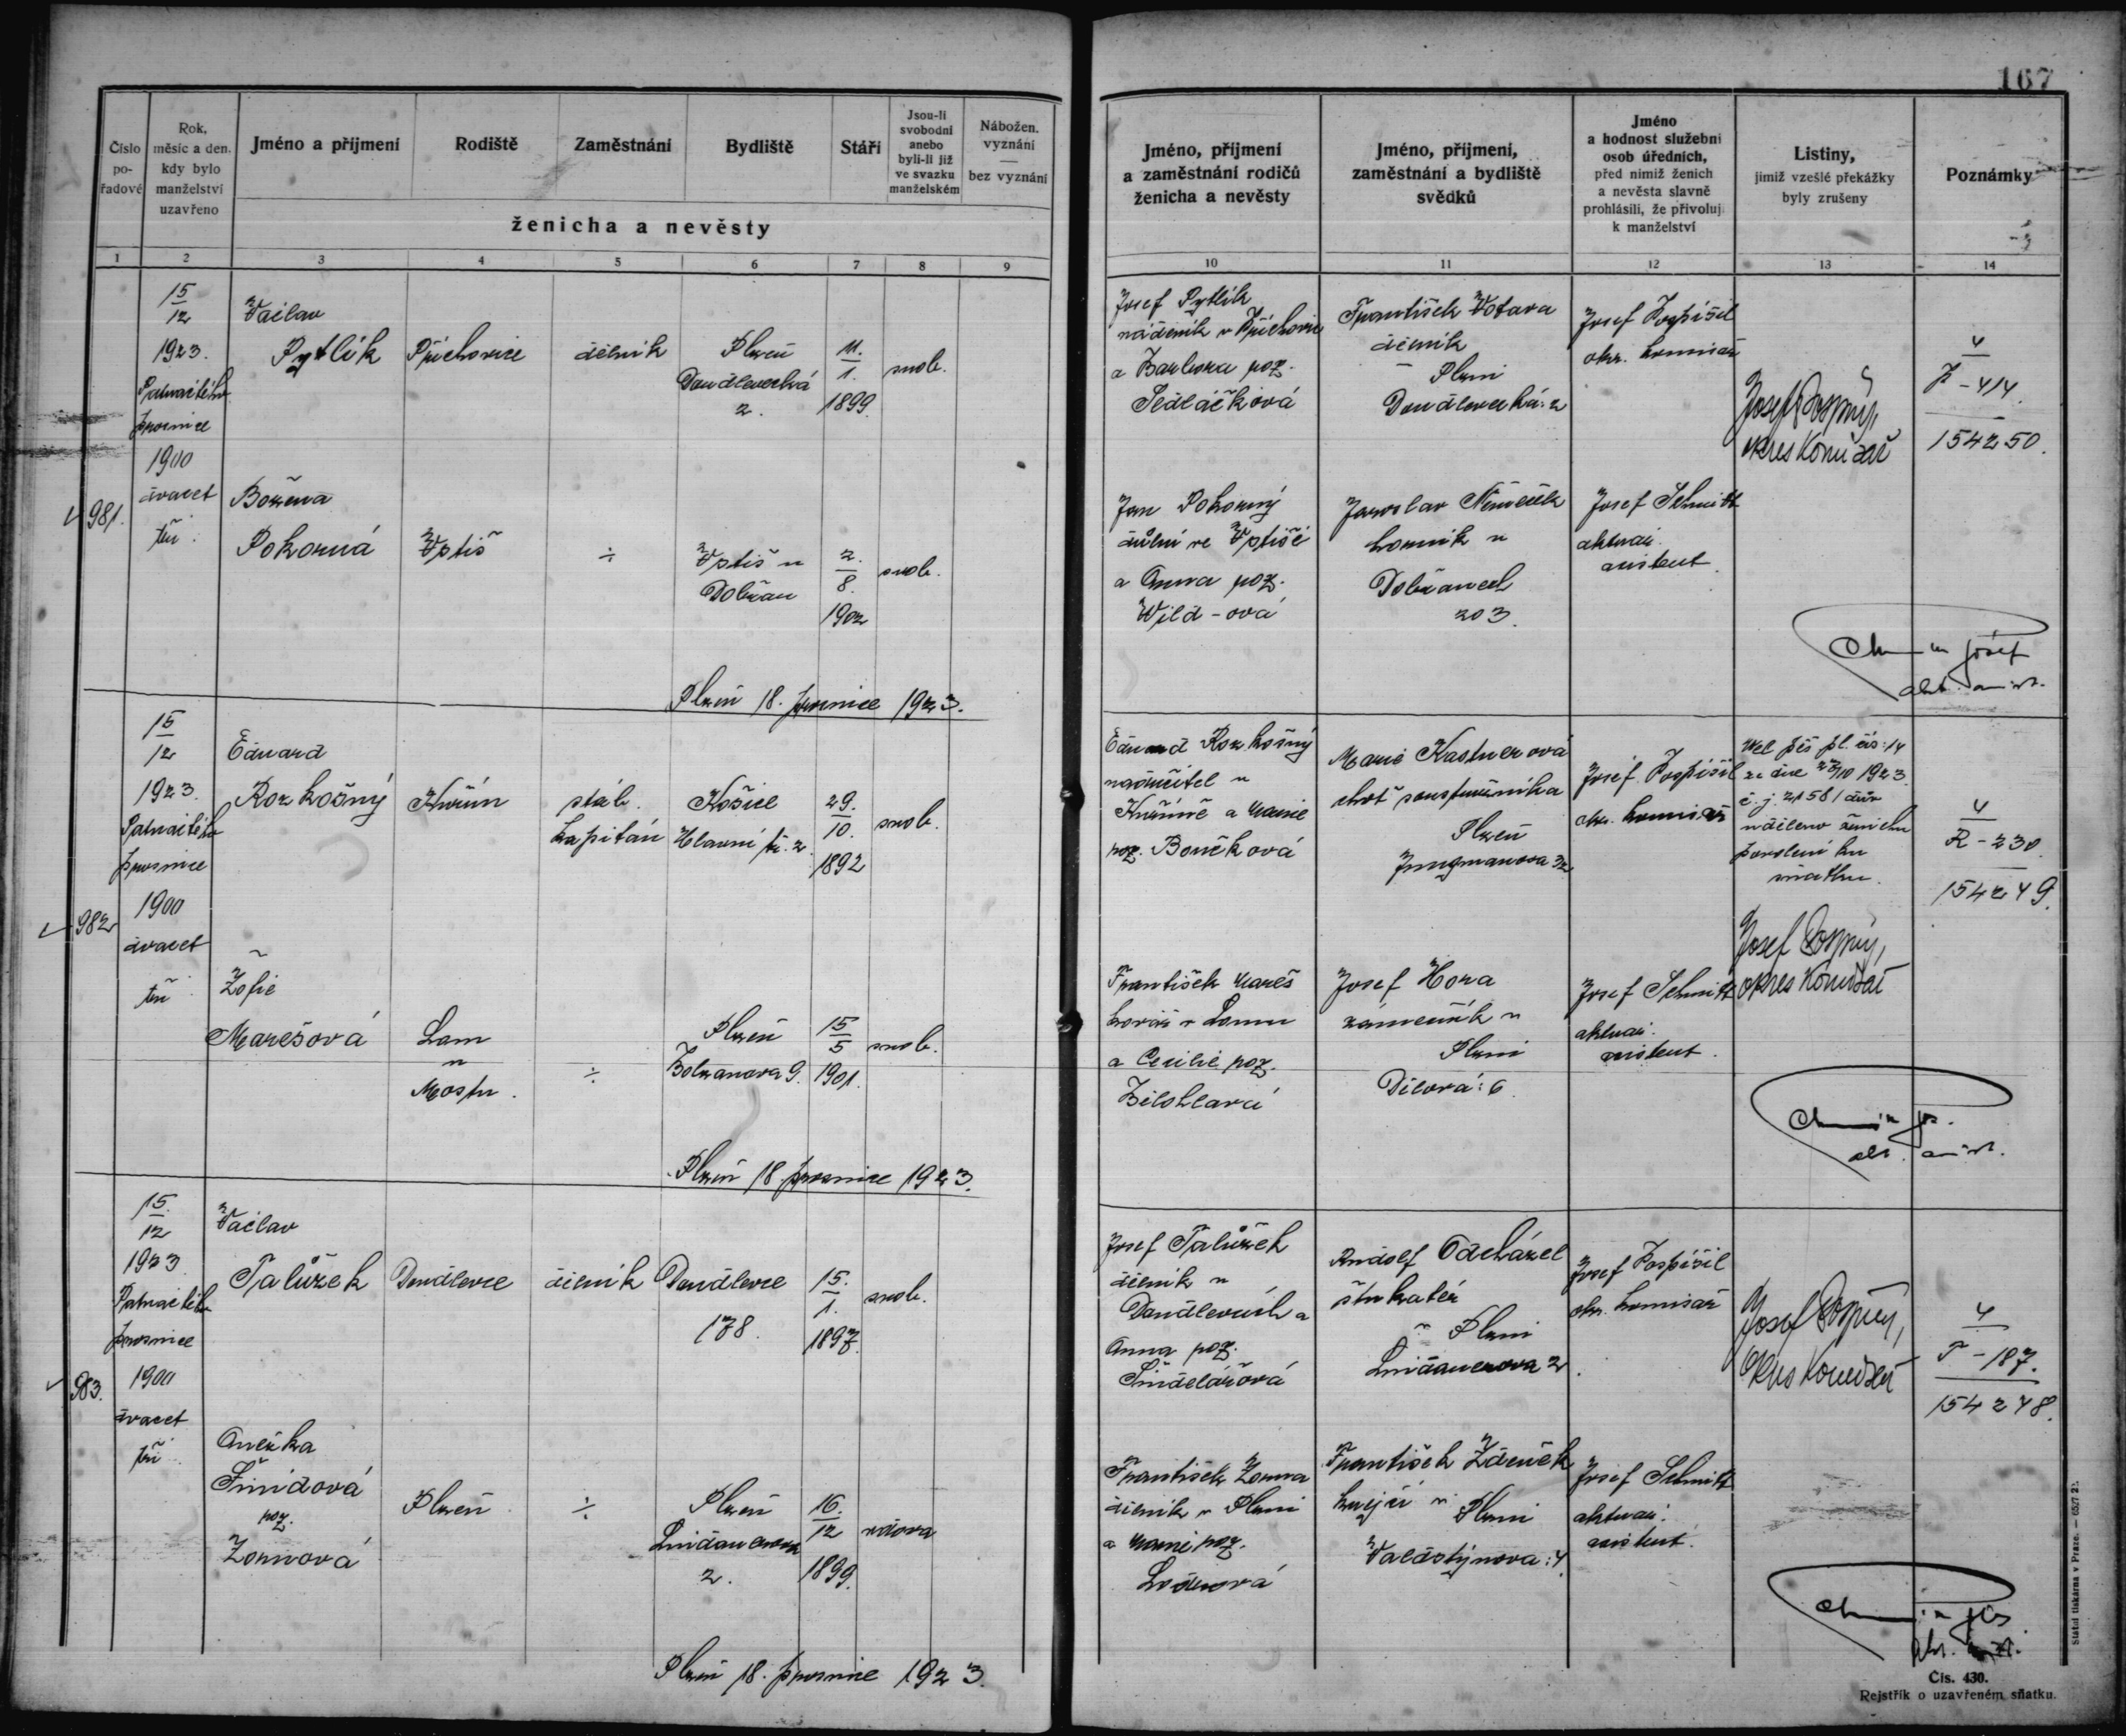 167
Číslo
po-
řadové
Rok,
měsíc a den,
kdy bylo
manželství
uzavřeno
Jméno a příjmení
Rodiště
Zaměstnání
Bydliště
Stáří
Jsou-li
svobodni
anebo
byli-li již
ve svazku
manželském
Nábožen.
vyznání
—
bez vyznání
ženicha a nevěsty
1 2 3 4 5 6 7 8 9
Jméno, příjmení
a zaměstnání rodičů
ženicha a nevěsty
Jméno, příjmení,
zaměstnání a bydliště
svědků
Jméno
a hodnost služební
osob úředních,
před nimiž ženich
a nevěsta slavně
prohlásili, že přivolují
k manželství
Listiny,
jimiž vzešlé překážky
byly zrušeny
Poznámky
10 11 12 13 14
981.
15
12
1923.
Patnáctého
prosince
1900
dvacet
tři
Václav
Pytlík
Příchovice
dělník
Plzeň
Doudlevecká
2.
11.
1.
1899.
svob.
Božena
Pokorná
Vstiš
÷
Vstiš u
Dobřan
2.
8.
1902
svob.
Plzeň 18. prosince 1923.
Josef Pytlík
nádeník v Příchovic
a Barbora roz.
Sedláčková
František Votava
dělník
Plzni
Doudlevecká: 2
Josef Pospíšil
okr. komisař
Josef Pospíšil,
okres komisař
4
P - 414.
154250.
Jan Pokorný
důlní ve Vstiši
a Anna roz.
Wild-ová
Jaroslav Němeček
horník v
Dobřanech
203.
Josef Schmidt
aktuár.
asistent
982
15
12
1923.
Patnáctého
prosince
1900
dvacet
tři
Eduard
Rozkošný
Kuřim
štáb.
kapitán
Košice
Hlavní tř. 2
29.
10.
1892
svob.
Žofie
Marešová
Lom
u
Mostu.
÷
Plzeň
Bolzanova 9.
15
5
1901.
svob.
Plzeň 18 prosince 1923.
Eduard Rozkošný
nadučitel v
Kuřimě a Marie
roz. Bončková
Marie Kastnerová
choť soustružníka
Plzeň
Jungmanova 32
Josef Pospíšil
okr. komisař
Vel pěš pl. čís: 14
ze dne 27/10 1923
č. j. 21581 dův
uděleno ženichu
povolení ku
sňatku.
Josef Pospíšil,
okres komisař
4
R - 230
154249.
František Mareš
kovář v Lomu
a Cecilie roz.
Bělohlavá
Josef Hora
zámečník v
Plzni
Dílová: 6.
Josef Schmidt
aktuár.
asistent.
983.
15.
12
1923
Patnáctého
prosince
1900
dvacet
tři
Václav
Talůžek
Doudlevce
dělník
Doudlevce
178.
15.
1.
1897.
svob.
Anežka
Šmídová
roz.
Zornová
Plzeň
÷
Plzeň
Lindauerova
2.
16.
12
1899.
vdova
Plzeň 18. prosince 1923.
Josef Talůžek
dělník v
Doudlevcích a
Anna roz.
Šindelářová
Rudolf Odcházel
štukatér
v Plzni
Lindauerova 2.
Josef Pospíšil
okr. komisař
Josef Pospíšil,
okres komisař
4
T - 187.
154248.
František Zorna
dělník v Plzni
a Marie roz.
František Zdeněk
krejčí v Plzni
Valdštýnova: 4.
Josef Schmidt
aktuár.
asistent.
Čís. 430.
Rejstřík o uzavřeném sňatku.
Státní tiskárna v Praze. — 655/7 21.